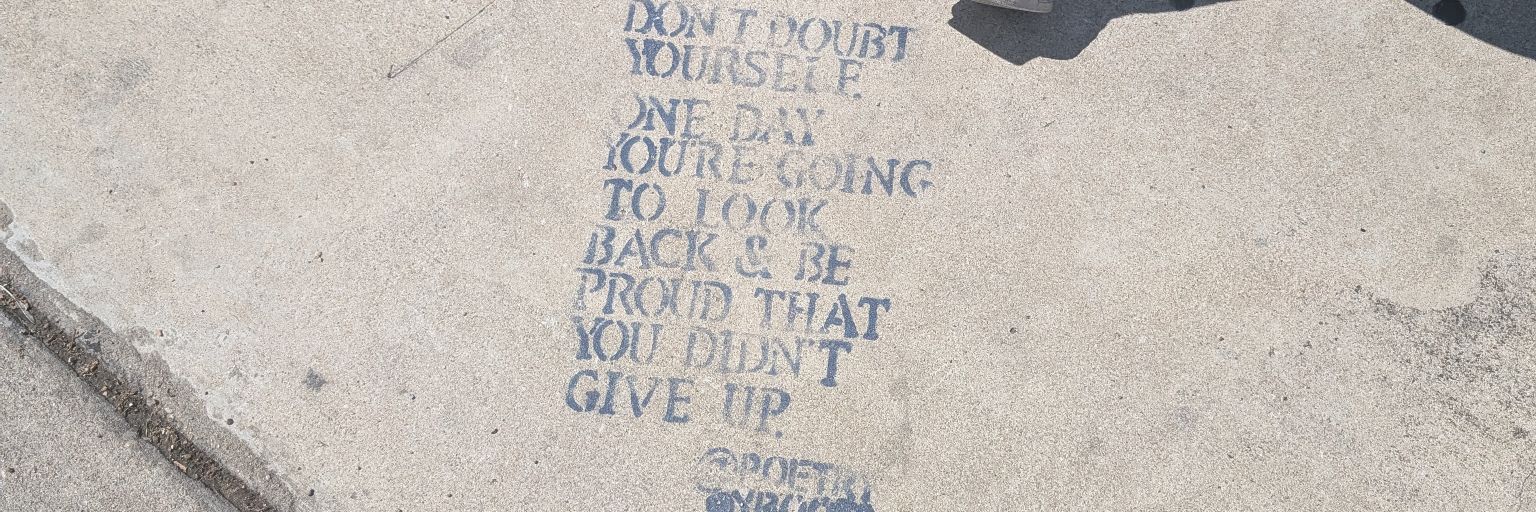 DON'T DOUBT
YOURSELF.
ONE DAY
YOU'RE GOING
TO LOOK
BACK & BE
PROUD THAT
YOU DIDN'T
GIVE UP.
@POETRY